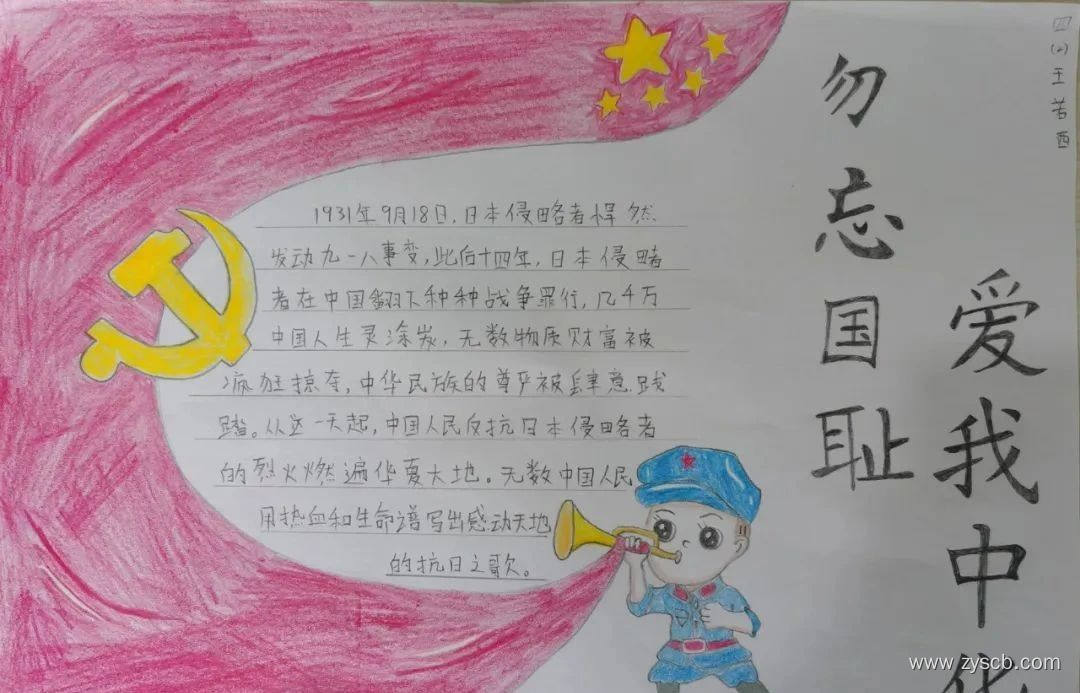 四(2)王若西
勿忘国耻
爱我中华
1931年9月18日,日本侵略者悍然
发动九一八事变,此后十四年,日本侵略
者在中国翻下种种战争罪行,几千万
中国人生灵涂炭,无数物质财富被
疯狂掠夺,中华民族的尊严被肆意践
踏。从这一天起,中国人民反抗日本侵略者
的烈火燃遍华夏大地。无数中国人民
用热血和生命谱写出感动天地
的抗日之歌。
www.zyscb.com